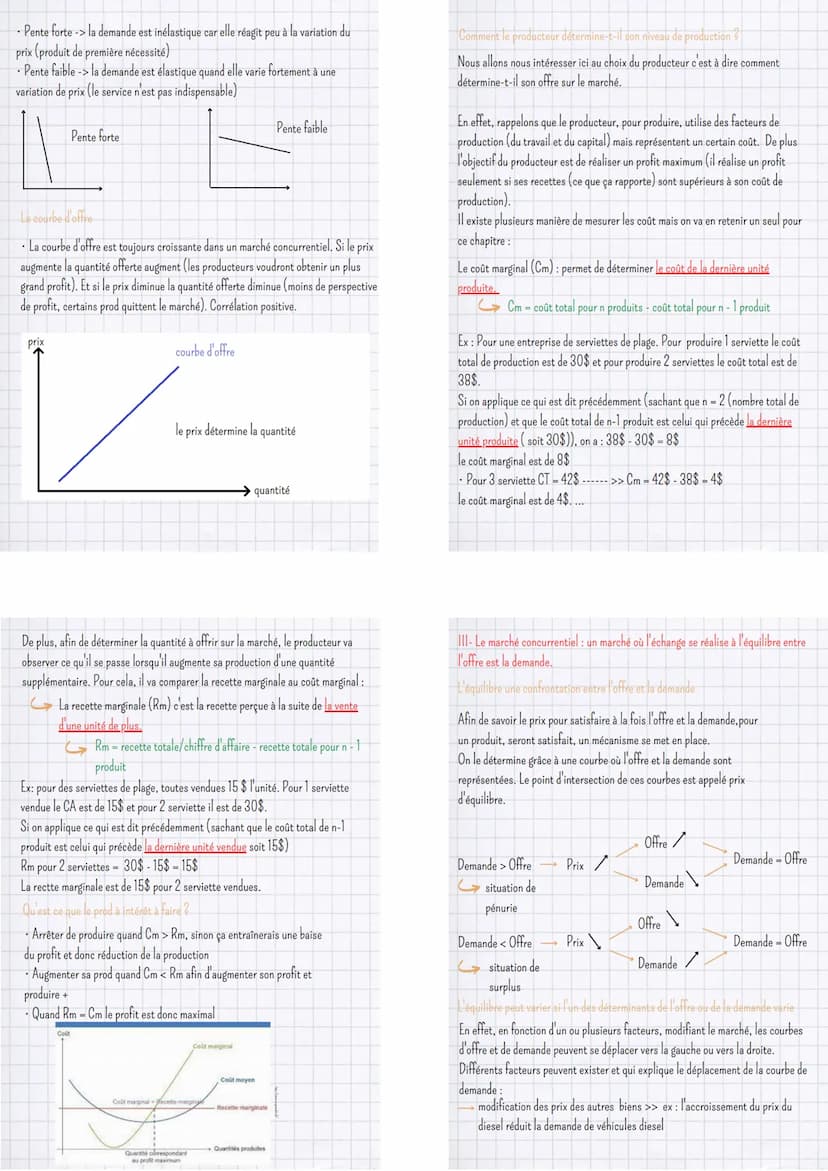 · Pente forte -> la demande est inélastique car elle réagit peu à la variation du
prix (produit de première nécessité)
· Pente faible -> la demande est élastique quand elle varie fortement à une
variation de prix (le service n'est pas indispensable)
Pente forte
Pente faible
La courbe d'offre
· La courbe d'offre est toujours croissante dans un marché concurrentiel. Si le prix
augmente la quantité offerte augment (les producteurs voudront obtenir un plus
grand profit). Et si le prix diminue la quantité offerte diminue (moins de perspective
de profit, certains prod quittent le marché). Corrélation positive.
prix
courbe d'offre
le prix détermine la quantité
quantité
Comment le producteur détermine-t-il son niveau de production ?
Nous allons nous intéresser ici au choix du producteur c'est à dire comment
détermine-t-il son offre sur le marché.
En effet, rappelons que le producteur, pour produire, utilise des facteurs de
production (du travail et du capital) mais représentent un certain coût. De plus
l'objectif du producteur est de réaliser un profit maximum (il réalise un profit
seulement si ses recettes (ce que ça rapporte) sont supérieurs à son coût de
production).
Il existe plusieurs manière de mesurer les coût mais on va en retenir un seul pour
ce chapitre :
Le coût marginal (Cm) : permet de déterminer le coût de la dernière unité
produite.
Cm = coût total pour n produits - coût total pour n - 1 produit
Ex : Pour une entreprise de serviettes de plage. Pour produire 1 serviette le coût
total de production est de 30$ et pour produire 2 serviettes le coût total est de
38$.
Si on applique ce qui est dit précédemment (sachant que n = 2 (nombre total de
production) et que le coût total de n-1 produit est celui qui précède la dernière
unité produite ( soit 30$)), on a : 38$ - 30$ = 8$
le coût marginal est de 8$
· Pour 3 serviette CT = 42$ ------ >> Cm = 42$ - 38$ = 4$
le coût marginal est de 4$. ...
De plus, afin de déterminer la quantité à offrir sur la marché, le producteur va
observer ce qu'il se passe lorsqu'il augmente sa production d'une quantité
supplémentaire. Pour cela, il va comparer la recette marginale au coût marginal :
La recette marginale (Rm) c'est la recette perçue à la suite de la vente
d'une unité de plus.
Rm = recette totale/chiffre d'affaire - recette totale pour n - 1
produit
Ex: pour des serviettes de plage, toutes vendues 15 $ l'unité. Pour 1 serviette
vendue le CA est de 15$ et pour 2 serviette il est de 30$.
Si on applique ce qui est dit précédemment (sachant que le coût total de n-1
produit est celui qui précède la dernière unité vendue soit 15$)
Rm pour 2 serviettes = 30$ - 15$ = 15$
La rectte marginale est de 15$ pour 2 serviette vendues.
Qu'est ce que le prod à intérêt à faire ?
· Arrêter de produire quand Cm > Rm, sinon ça entraînerais une baise
du profit et donc réduction de la production
· Augmenter sa prod quand Cm < Rm afin d'augmenter son profit et
produire +
· Quand Rm = Cm le profit est donc maximal
Coût
Coût marginal
Coût moyen
Coût marginal = Recette marginale
Recette marginale
Quantités produites
Quantité correspondant
au profit maximum
III- Le marché concurrentiel : un marché où l'échange se réalise à l'équilibre entre
l'offre est la demande.
L'équilibre une confrontation entre l'offre et la demande
Afin de savoir le prix pour satisfaire à la fois l'offre et la demande,pour
un produit, seront satisfait, un mécanisme se met en place.
On le détermine grâce à une courbe où l'offre et la demande sont
représentées. Le point d'intersection de ces courbes est appelé prix
d'équilibre.
Offre
Demande > Offre → Prix
Demande = Offre
Demande
situation de
pénurie
Offre
Demande < Offre → Prix
Demande = Offre
Demande
situation de
surplus
L'équilibre peut varier si l'un des déterminants de l'offre ou de la demande varie
En effet, en fonction d'un ou plusieurs facteurs, modifiant le marché, les courbes
d'offre et de demande peuvent se déplacer vers la gauche ou vers la droite.
Différents facteurs peuvent exister et qui explique le déplacement de la courbe de
demande :
→ modification des prix des autres biens >> ex : l'accroissement du prix du
diesel réduit la demande de véhicules diesel